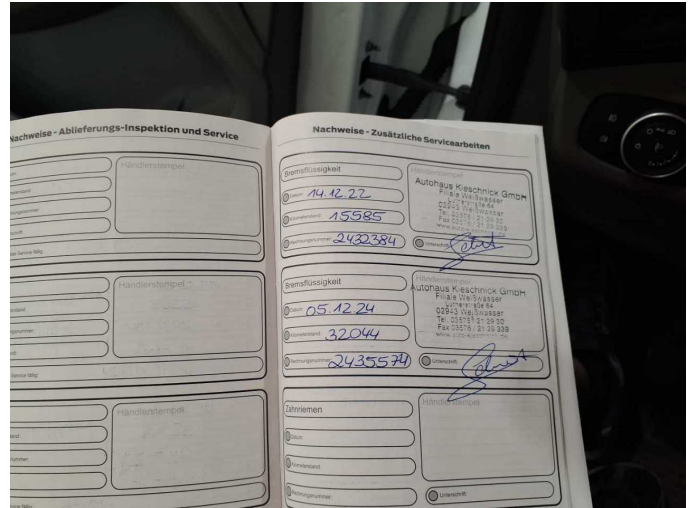 Nachweise - Ablieferungs-Inspektion und Service
Händlerstempel
Service fällig:
Händlerstempel
Service fällig:
Händlerstempel
Service fällig:
Nachweise - Zusätzliche Servicearbeiten
Bremsflüssigkeit
Datum: 14.12.22
Kilometerstand: 15585
Rechnungsnummer: 2432384
Händlerstempel
Autohaus Kieschnick GmbH
Filiale Weißwasser
Lutherstraße 64
02943 Weißwasser
Tel. 03576 / 21 29 30
Fax 03576 / 21 29 339
Unterschrift:
Bremsflüssigkeit
Datum: 05.12.24
Kilometerstand: 32044
Rechnungsnummer: 2435574
Händlerstempel
Autohaus Kieschnick GmbH
Filiale Weißwasser
Lutherstraße 64
02943 Weißwasser
Tel. 03576 / 21 29 30
Fax 03576 / 21 29 339
Unterschrift:
Zahnriemen
Datum:
Kilometerstand:
Rechnungsnummer:
Händlerstempel
Unterschrift: